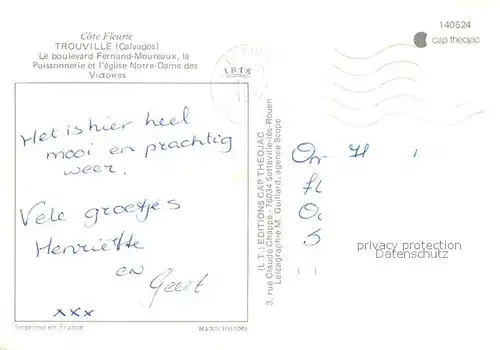 Côte Fleurie
TROUVILLE (Calvados)
Le boulevard Fernand-Moureaux, la
Poissonnerie et l'église Notre-Dame des
Victoires
140524
cap theojac
IRIS
Het is hier heel
mooi en prachtig
weer.
Vele groetjes
Henriette
en
Geert
xxx
(L.T.) EDITIONS CAP THEOJAC
3, rue Claude Chappe - 76034 Sotteville-lès-Rouen
Leicagraphie M. Guillard, agence Scope
privacy protection
Datenschutz
Imprimé en France
MEXICHROME